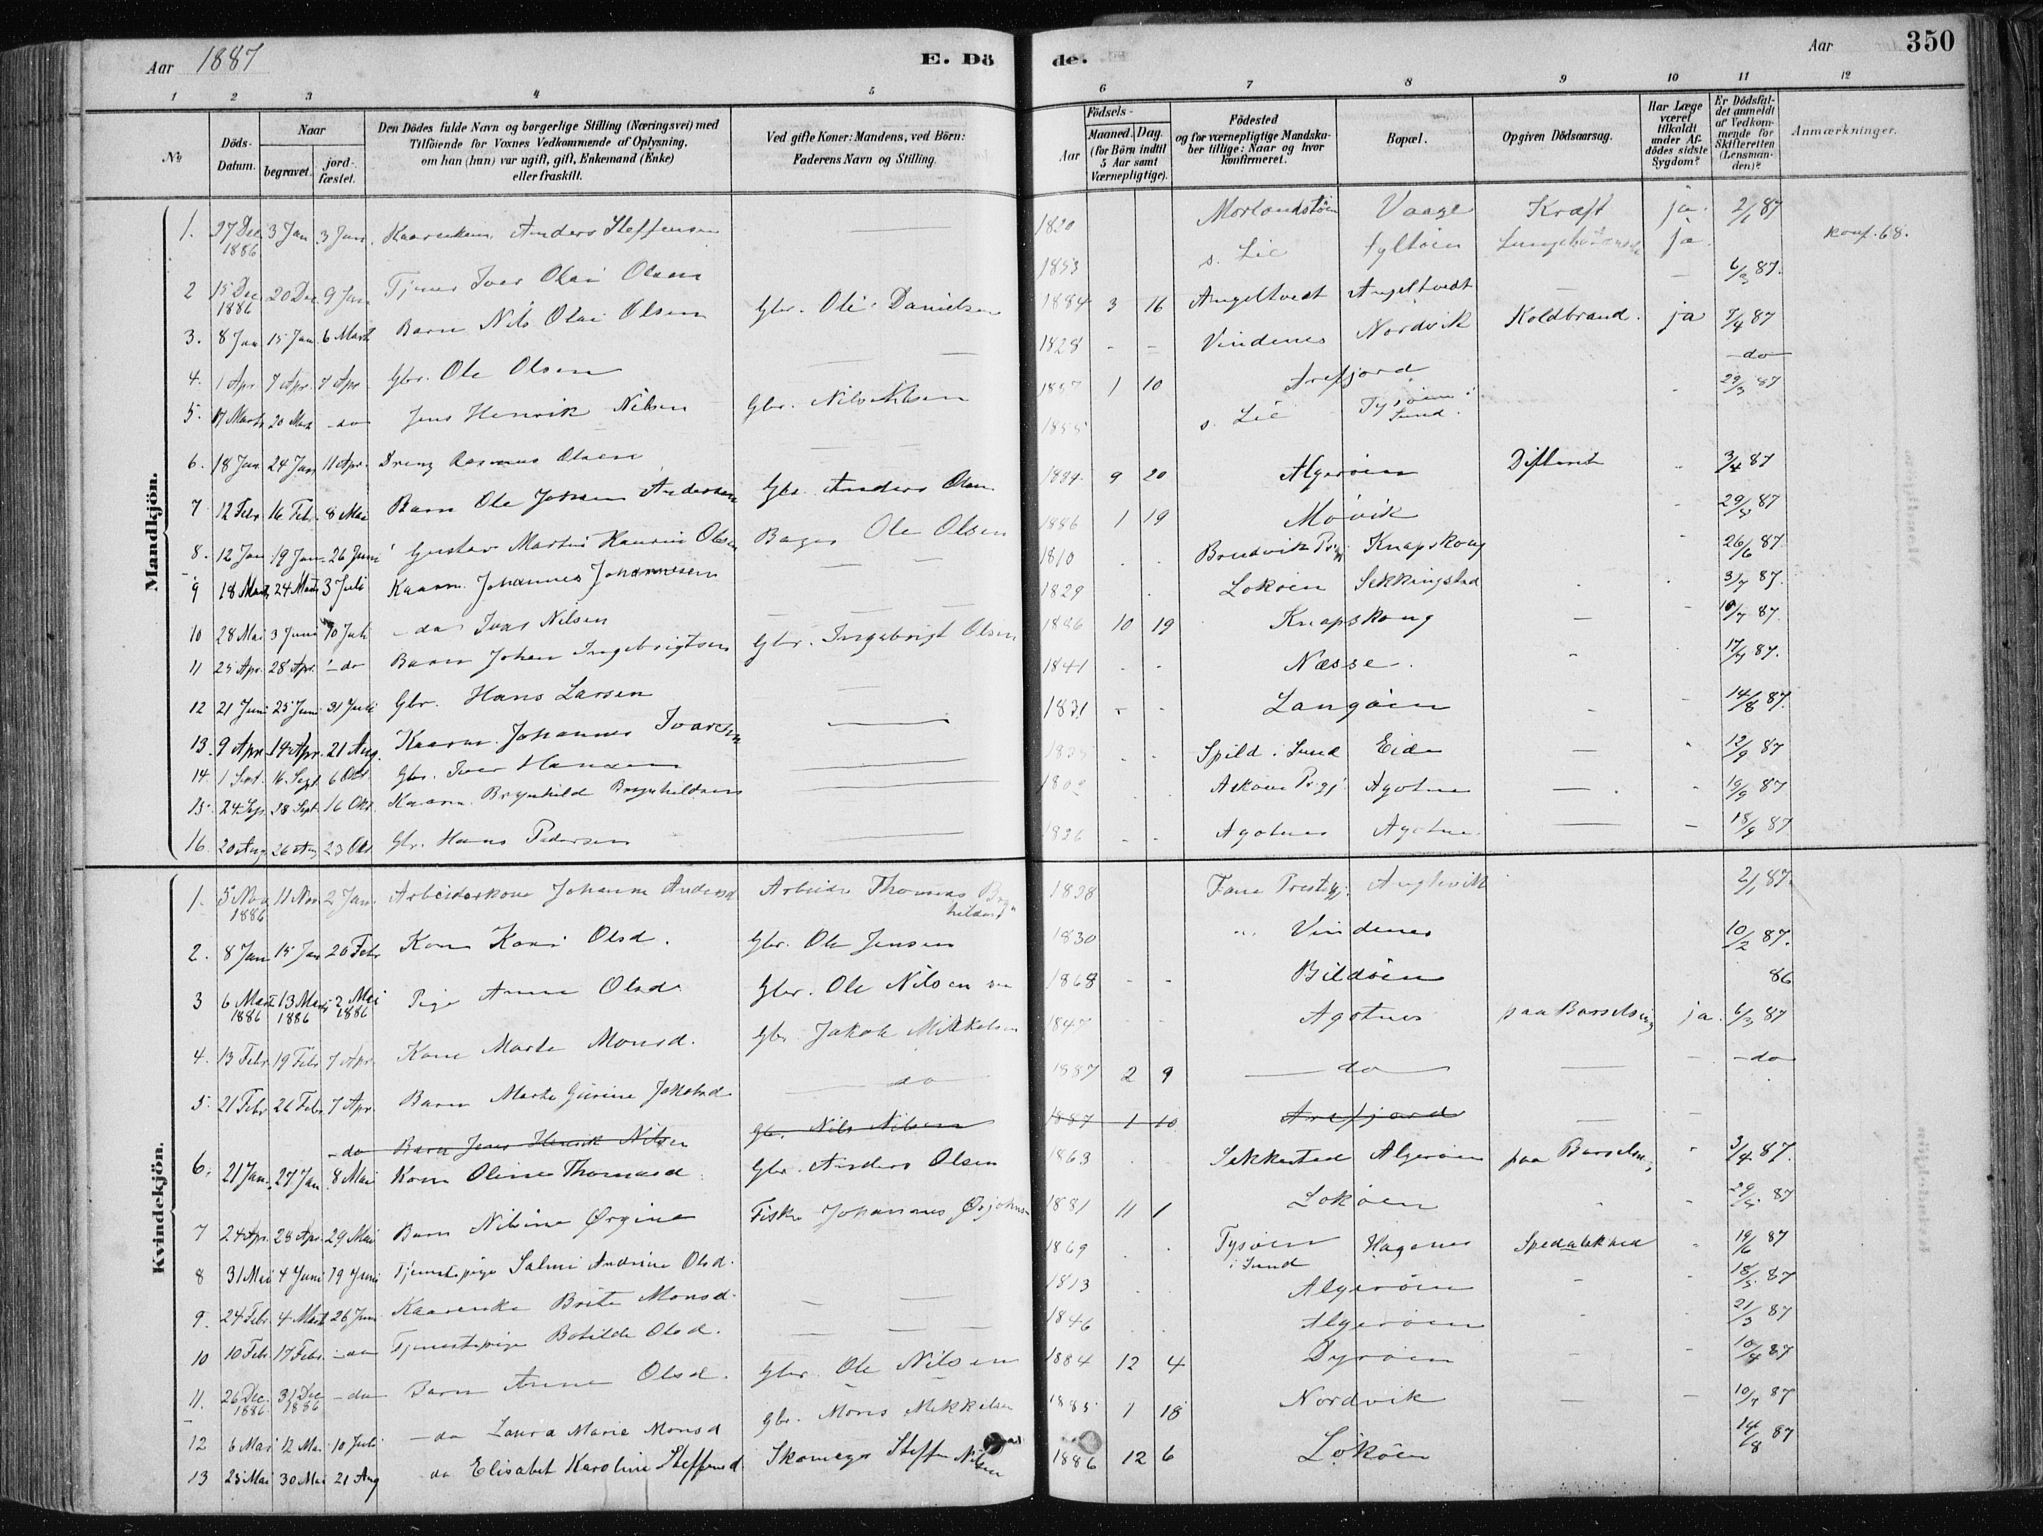 Aar 1887
E. Döde.
Aar
350
1 2 3 4 5 6 7 8 9 10 11 12
No
Döds-Datum.
Naar
begravet. jordfæstet.
Den Dödes fulde Navn og borgerlige Stilling (Næringsvei) med
Tilföiende for Voxnes Vedkommende af Oplysning,
om han (hun) var ugift, gift, Enkemand (Enke)
eller fraskilt.
Ved gifte Koner: Mandens, ved Börn:
Faderens Navn og Stilling.
Födsels-
Aar
Maaned. Dag.
(for Börn indtil
5 Aar samt
Værnepligtige).
Födested
og for værnepligtige Mandskaber tillige: Naar og hvor
konfirmeret.
Bopæl.
Opgiven Dödsaarsag.
Har Læge
været
tilkaldt
under Afdödes sidste
Sygdom?
Er Dödsfaldet anmeldt
af Vedkommende for
Skifteretten
(Lensmanden)?
Anmærkninger.
Mandkjön.
1. 27 Dec 1886 3 Jan 3 Jan. Anders Steffensen 1820 Vaage Kræft ja. 2/1 87
2 15 Dec 1886 20 Dec 9 Jan Tjener Iver Olai Olsen 1853 s. Lie Syltöen ja. konf. 68.
3. 8 Jan 15 Jan 6 Marts Barn Nils Olai Olsen Gbr. Ole Danielsen 1884 3 16 Angeltvedt Angeltvedt 6/3 87.
4. 1 Apr 7 Apr. 7 Apr Gbr. Ole Olsen 1828 Vindenes Nordvik Koldbrand. ja 7/4 87
5. 17 Marts 20 Mar do Jens Henrik Nilsen Gbr. Nils Nilsen 1887 1 10 Arefjord do
6. 18 Jan 24 Jan 11 Apr. Dreng Rasmus Olsen 1855 s. Lie Tysöen i Sund. 29/3 87
7 12 Febr 16 Febr 8 Mai Barn Ole Johan Andersen Gbr. Anders Olsen 1884 9 20 Algeröen 3/4 87
8. 12 Jan 19 Jan 26 Juni Gustav Martin Olsen Bager Ole Olsen 1886 1 19 Mövik 29/5 87
9 18 Marts 24 Marts 3 Juli Kaarm. Johannes Johannesen 1810 Knapskoug 26/6 87.
10 28 Mai 3 Juni 10 Juli do Ivar Nilsen 1829 Loköen Sekkingstad 3/7 87.
11 25 Apr. 28 Apr. do Barn Johan Ingebrigtsen Gbr. Ingebrigt Olsen 1886 10 19 Knapskoug 10/7 87.
12 21 Juni 25 Juni 31 Juli Gbr. Hans Larsen 1841 Næsse 17/7 87.
13. 9 Apr. 14 Apr. 21 Aug. Kaarm. Johannes Ivarsen 1831 Langöen 14/8 87.
14. 1 Sept. 16. Sept 6 Okt Gbr. Iver Hansen Spild i Sund Eide 12/9 87
15. 24 Sept 28 Sept 16 Okt. Kaarm. Brynhild Brynhildsen Asköens Prgj. Agotnes 19/9 87
16. 20 Aug 26 Aug 23 Okt Gbr. Hans Pedersen 1836 Agotnes Agotnes 18/9 87
Kvindekjön.
1. 5 Nov 1886 11 Nov 2 Jan. Arbeiderskone Johanne Andersd Arbeider Thomas Brynhildsen 1828 Fane Prestegj. 2/1 87.
2. 8 Jan 15 Jan 20 Febr Kone Kari Olsd. Gbr. Ole Jensen 1830 Vindenes 10/2 87.
3 6 Marts 1886 13 Marts 1886 2 Mai 1886 Pige Anna Olsd. Gbr. Ole Nilsen 1868 Bildöen 86
4. 13 Febr. 19 Febr 7 Apr. Kone Marte Monsd. Gbr. Jakob Mikkelsen 1847 Agotnes paa Barselseng ja. 6/3 87
5. 21 Febr 26 Febr 7 Apr. Barn Marte Gurine Jakobsd do 1887 2 9 do do
do Barn Jens Henrik Nilsen Gbr. Nils Nilsen 1887 1 10 Arefjord
6. 21 Jan. 27 Jan 8 Mai Kone Oline Thomasd. Gbr. Anders Olsen 1863 Sekkestad Algeröen paa Barselseng 3/4 87.
7 24 Apr. 28 Apr. 29 Mai Barn Nilsine Ørgine Fisker Johannes 1881 11 1 Loköen 29/5 87
8 31 Mai 4 Juni 19 Juni Tjenestepige Salmi Andrine Olsd. 1869 Tysöen i Sund Hagenes Spedalskhed 19/6 87
9. 24 Febr. 4 Marts 26 Juni Kaarenke Brite Monsd. 1813 Algeröen 18/5 87
10 10 Febr. 17 Febr. do Tjenestepige Botilde Olsd. 1846 Algeröen 21/3 87
11. 26 Dec. 1886 31 Dec 1886 do Barn Anna Olsd. Gbr. Ole Nilsen 1884 12 4 Dyröen 10/4 87
12 6 Mai 12 Mai 10 Juli do Laura Marie Monsd Gbr. Mons Mikkelsen 1885 1 18 Nordvik 10/7 87
13 25 Mai 30 Mai 21 Aug do Elisabet Karoline Steffensd Skomager Steffen Nilsen 1886 12 6 Loköen 14/8 87